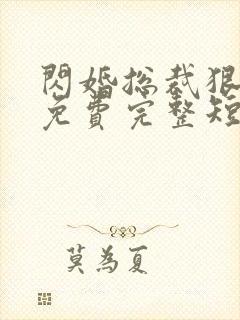 閃婚總裁狠
免費完整短
莫為夏